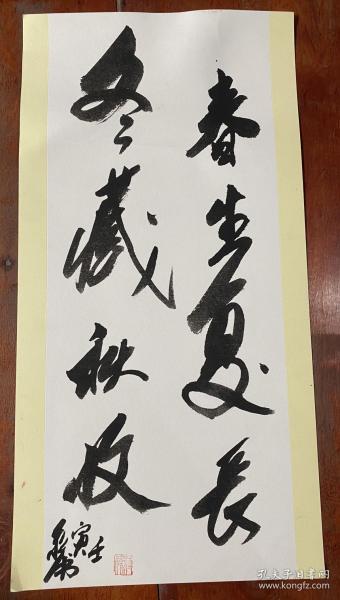 春生夏長
冬藏秋收
壬寅
孔夫子旧书网
www.kongfz.com